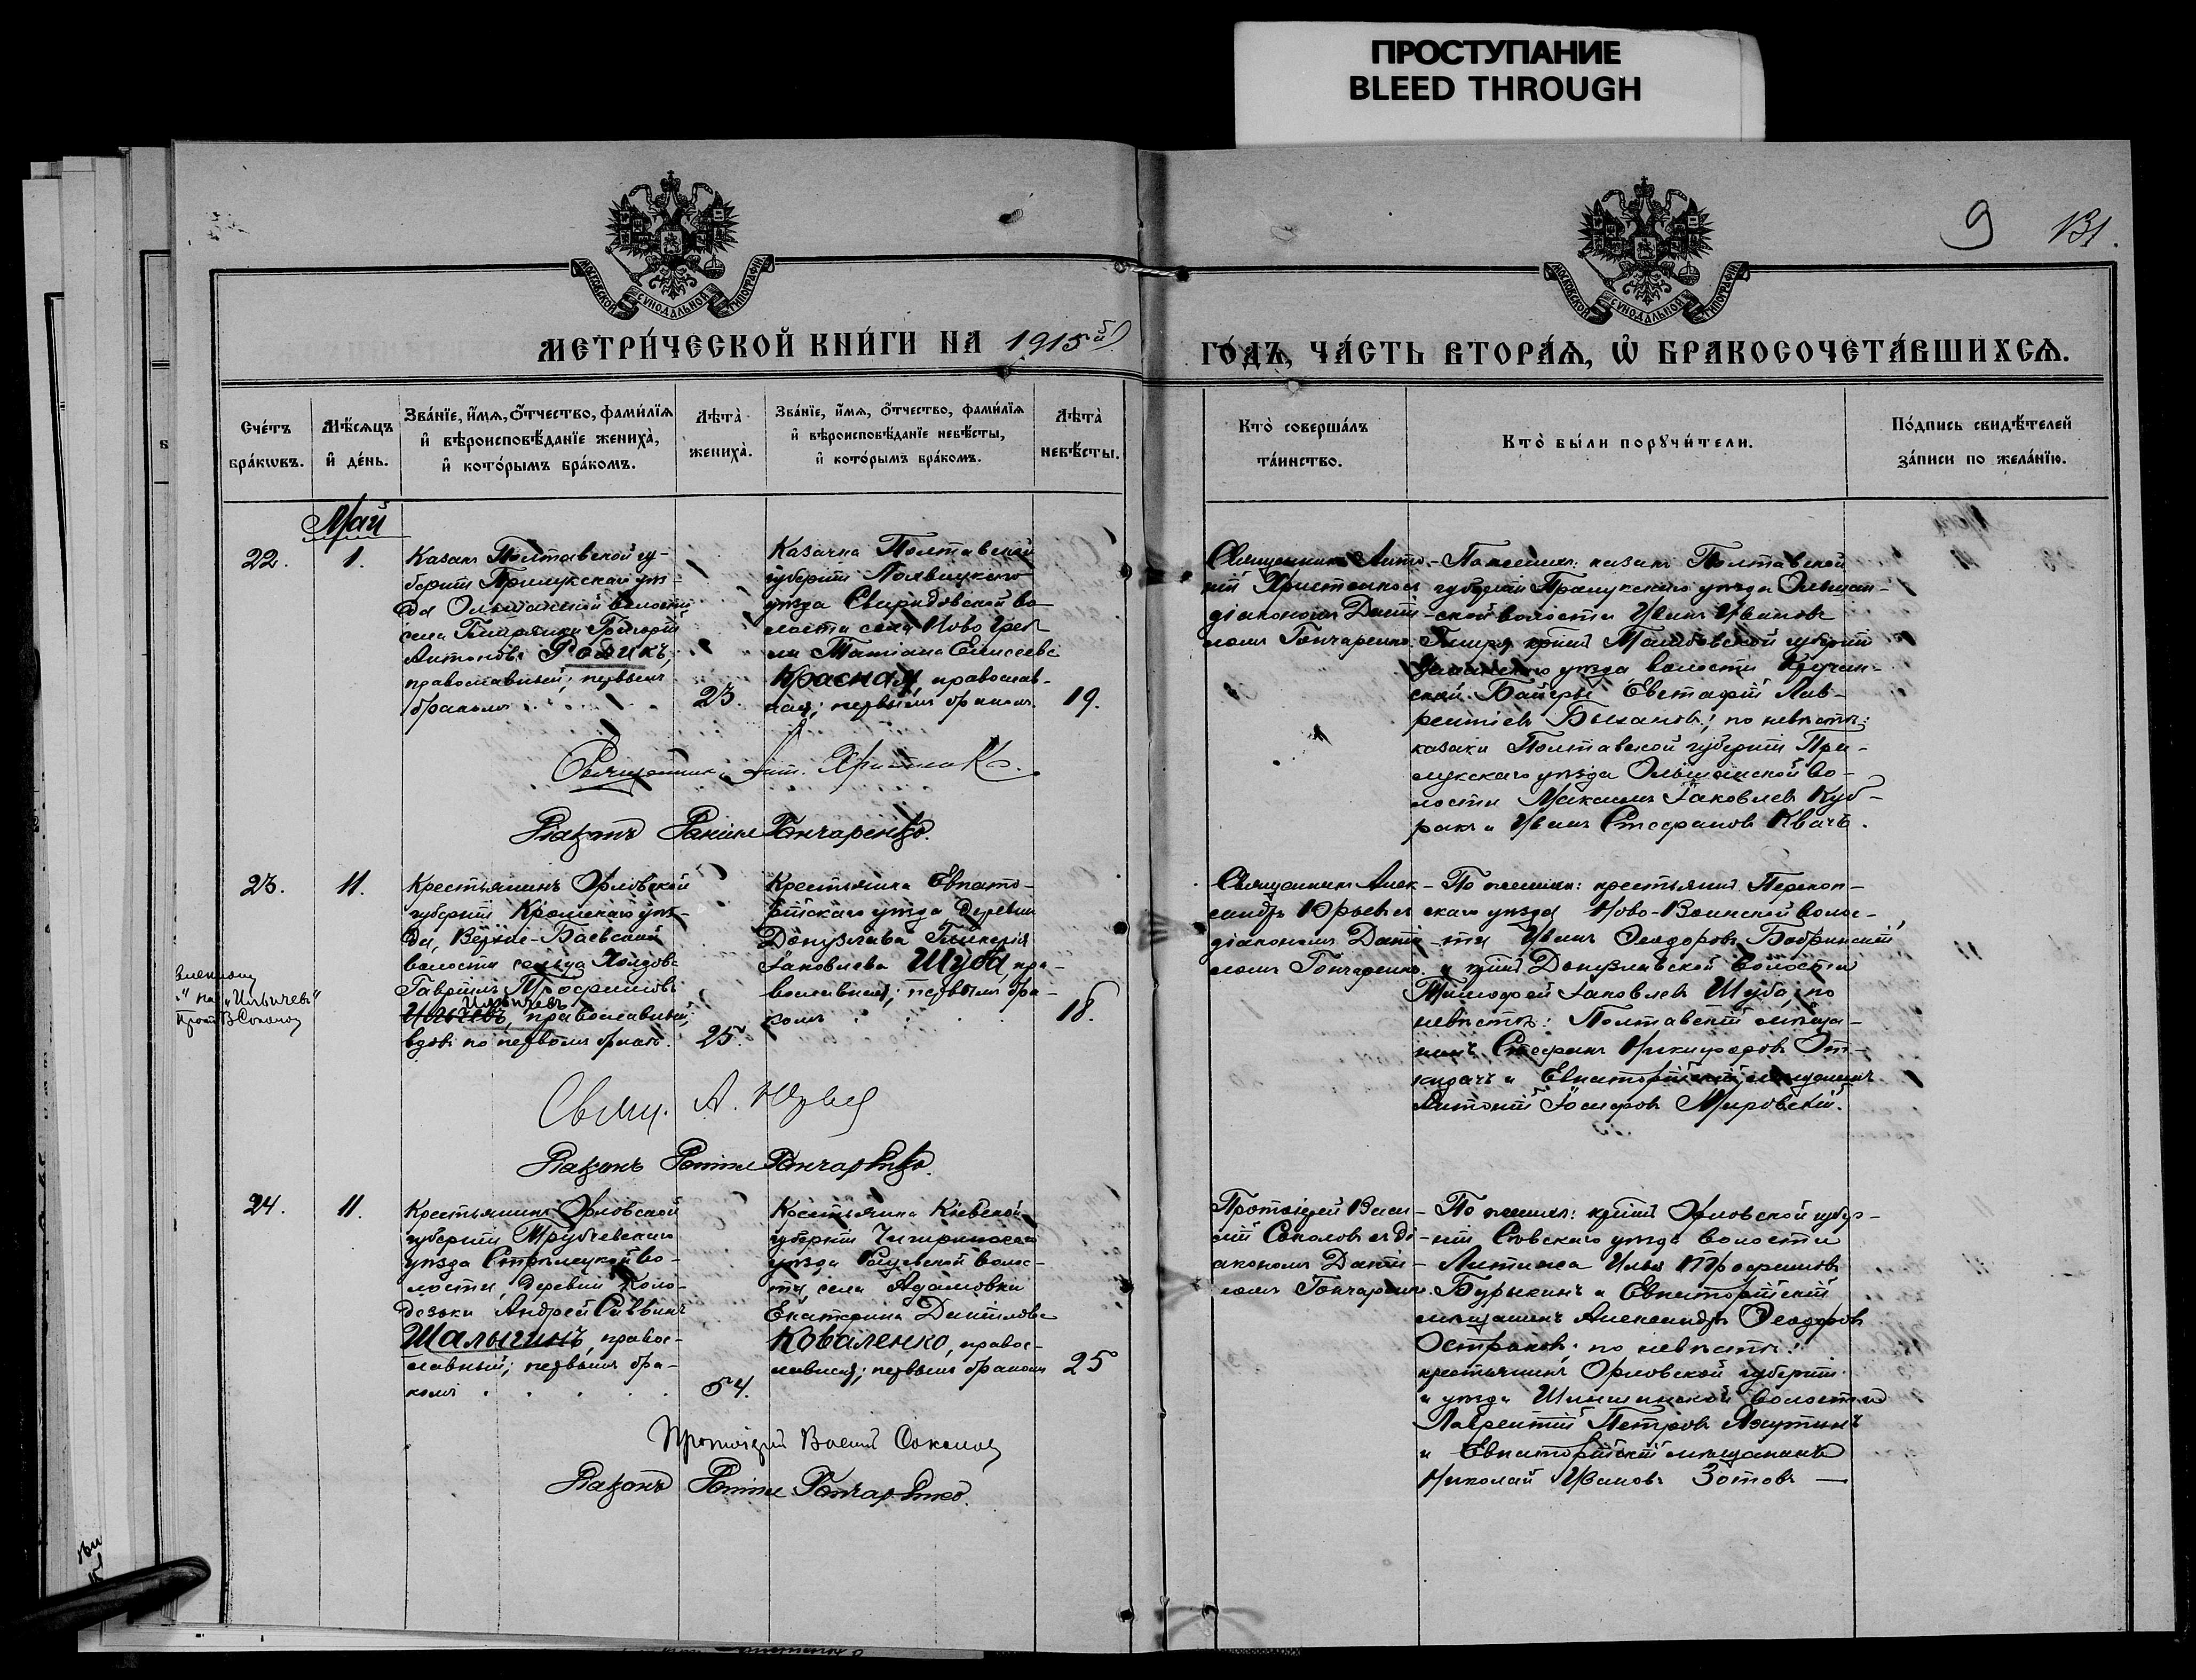 ПРОСТУПАНИЕ
BLEED THROUGH
9 131.
МОСКОВСКОЙ СѴНОДАЛЬНОЙ ТИПОГРАФІИ
МОСКОВСКОЙ СѴНОДАЛЬНОЙ ТИПОГРАФІИ
МЕТРИ́ЧЕСКОЙ КНИ́ГИ НА 1915й
ГО́ДЪ, ЧА́СТЬ ВТОРА́Ѧ, Ѡ҆ БРАКОСОЧЕТА́ВШИХСѦ.
Сче́тъ бра́кѡвъ.
Мѣ́сѧцъ и҆ де́нь.
Зва́нїе, и҆́мѧ, ѻ҆́тчество, фами́лїѧ и҆ вѣроисповѣ́данїе жениха̀, и҆ кото́рымъ бра́комъ.
Лѣта̀ жениха̀.
Зва́нїе, и҆́мѧ, ѻ҆́тчество, фами́лїѧ и҆ вѣроисповѣ́данїе невѣ́сты, и҆ кото́рымъ бра́комъ.
Лѣта̀ невѣ́сты.
Кто̀ соверша́лъ та́инство.
Кто̀ бы́ли порꙋчи́тели.
По́дпись свидѣ́телей за́писи по жела́нїю.
Май
22.
1.
Казакъ Полтавской гу-
берніи Прилукскаго уѣз-
да Ольшанской волости
села Гмирянки Григорій
Антоновъ Росикъ,
православный; первымъ
бракомъ
23.
Казачка Полтавской
губерніи Лохвицкаго
уѣзда Свиридовской во-
лости села Ново Греб
ли Татіана Елисеева
Красная, православ-
ная; первымъ бракомъ.
19.
Священникъ Анто-
ній Христокъ съ
діакономъ Дані-
ломъ Гончаренко.
По женихѣ: казакъ Полтавской
губерніи Прилукскаго уѣзда Ольшан-
ской волости Иванъ Ивановъ
Гмиря, кр-нъ Тамбовской губерніи
уѣзда волости
Евстафій Лав-
рентіевъ Быхановъ; по невѣстѣ:
казаки Полтавской губерніи При-
лукскаго уѣзда Ольшанской во-
лости Максимъ Іаковлевъ Куб-
ракъ и Иванъ Стефановъ Квачъ.
Священникъ Ант. Христокъ.
Діаконъ Даніилъ Гончаренко.
23.
11.
Крестьянинъ Орловской
губерніи Кромскаго уѣз-
да, Верхне-Баевской
волости сельца Холдова
Гавріилъ Трофимовъ
Ильичевъ
православный;
вдовъ по первомъ бракѣ.
25.
на „Ильичевъ"
Прот. В Соколов
Крестьянка Евпато-
рійскаго уѣзда деревни
Донузлава Гликерія
Іаковлева Шуба, пра-
вославная; первымъ бра-
комъ
18.
Священникъ Алек-
сандръ Юрьевъ съ
діакономъ Дані-
ломъ Гончаренко.
По женихѣ: крестьянинъ Перекоп-
скаго уѣзда Ново-Воинской волос-
ти Иванъ Ѳеодоровъ Бобринскій
и кр-нъ Донузлавской волости
Тимофей Іаковлевъ Шуба; по
невѣстѣ: Полтавскій мѣща-
нинъ Стефанъ Никифоровъ От-
кидачъ и Евпаторійскій мѣщанинъ
Антоній Іосифовъ Мировскій.
Свящ. А. Юрьев
Діаконъ Даніилъ Гончаренко.
24.
11.
Крестьянинъ Орловской
губерніи Трубчевскаго
уѣзда Стрѣлецкой во-
лости, деревни Коло-
дезьки Андрей Саввинъ
Шалыгинъ, правос-
лавный; первымъ бра-
комъ
54.
Крестьянка Кіевской
губерніи Чигиринскаго
уѣзда волос-
ти, села Адамовки
Екатерина Даніилова
Коваленко, правос-
лавная; первымъ бракомъ
25
Протоіерей Васи-
лій Соколовъ съ ді-
акономъ Дані-
ломъ Гончаренко.
По женихѣ: кр-нъ Орловской губер-
ніи Сѣвскаго уѣзда волости
Литижа Илья Трофимовъ
Бурыкинъ и Евпаторійскій
мѣщанинъ Александръ Ѳеодоровъ
Остраховъ; по невѣстѣ:
крестьянинъ Орловской губерніи
и уѣзда волости
Лаврентій Петровъ Лагутинъ
и Евпаторійскій мѣщанинъ
Николай Ивановъ Зотовъ —
Протоіерей Василій Соколов
Діаконъ Даніилъ Гончаренко.